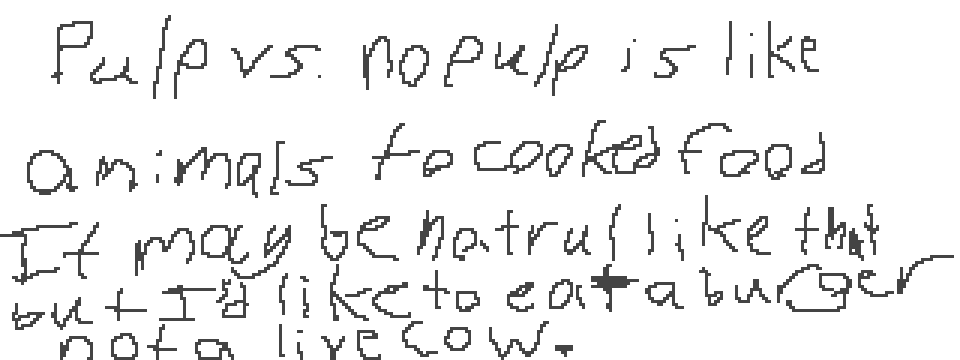 Pulp vs. no pulp is like
animals to cooked food
It may be natrul like that
but I'd like to eat a burger
not a live cow.